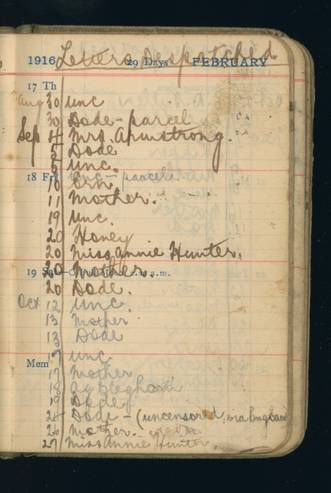 1916 Letters Despatched 29 Days FEBRUARY
17 Th
Aug 30 Unc
30 Dode - parcel
Sep 4 Mrs. Armstrong.
5 Dode
5 Unc.
18 Fri Unc - parcel.
10 Ern
11 Mother.
19 Unc.
20 Honey
20 Miss Annie Hunter.
19 Sa
20 Mother. a.m.
20 Dode.
Oct 12 Unc.
13 Mother
13 Dode
Mem
17 Unc
17 Mother
18
19 Dode
26 Dode - (uncensored, via England
26 Mother.
27 Miss Annie Hunter